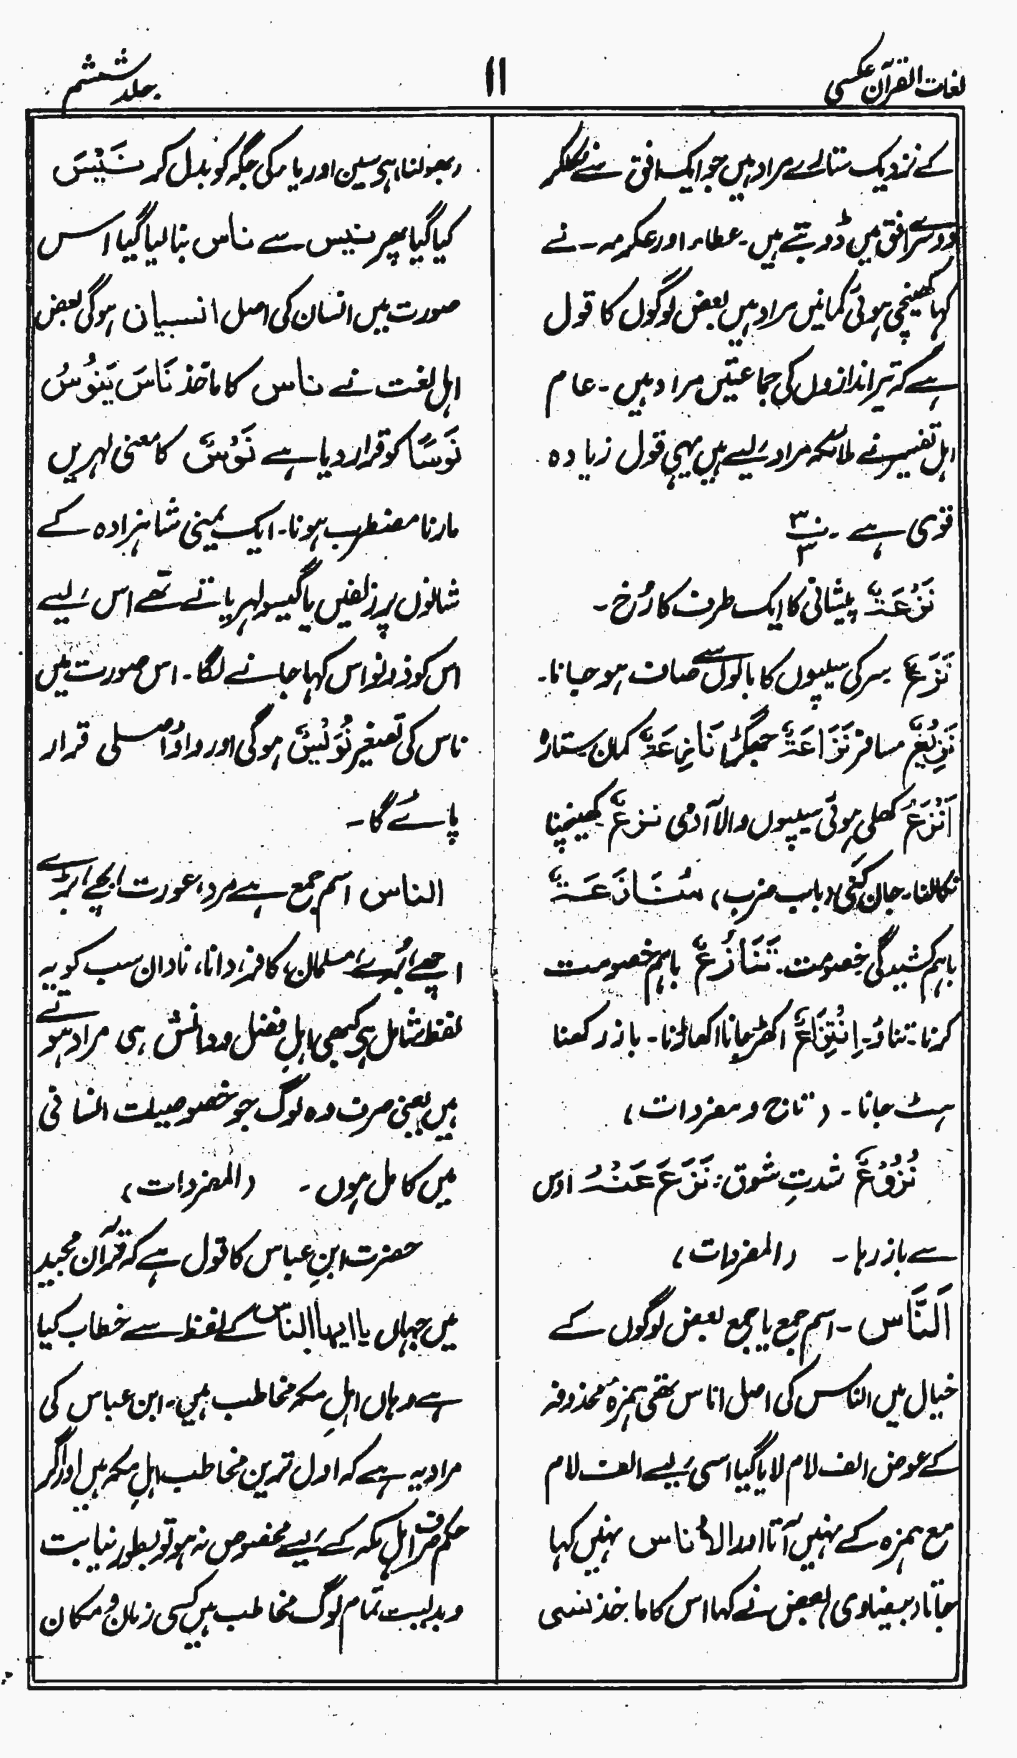 لغات القرآن عکسی
۱۱
جلد ششم
کے نزدیک ستارے مراد ہیں جو ایک افق سے نکلکر
دوسرے افق میں ڈوبتے ہیں۔ عطاء اور عکرمہ۔ نے
کہا کھینچی ہوئی کمانیں مراد ہیں بعض لوگوں کا قول
ہے کہ تیراندازوں کی جماعتیں مراد ہیں۔ عام
اہل تفسیر نے ملائکہ مراد لیے ہیں یہی قول زیادہ
قوی ہے۔
نَزْعَۃٌ پیشانی کا ایک طرف کا رُخ۔
نَزَعٌ سر کی سیپوں کا بالوں سے صاف ہو جانا۔
نَزِیْعٌ مسافر نَزَاعَۃٌ جھگڑا نَازِعَۃٌ کمان ستارہ
اَنْزَعُ کھلی ہوئی سیپوں والا آدمی نزعٌ کھینچنا
نکالنا۔ جان کنی (باب ضرب) مُنَازَعَۃٌ
باہم کشیدگی خصومت۔ تَنَازُعٌ باہم خصومت
کرنا۔ تناؤ۔ اِنْتِزَاعٌ اکھڑ جانا اکھاڑنا۔ باز رکھنا
ہٹ جانا۔ (تاج و مفردات)
نُزُوْعٌ شدتِ شوق: نَزَعَ عَنْہُ اوس
سے باز رہا۔ (المفردات)
اَلنَّاس۔ اسم جمع یا جمع بعض لوگوں کے
خیال میں الناس کی اصل اناس تھی ہمزہ محذوفہ
کے عوض الف لام لایا گیا اسی لیے الف لام
مع ہمزہ کے نہیں آتا اور الاُناس نہیں کہا
جاتا (بیضاوی) بعض نے کہا اس کا ماخذ نسی
(بھولنا) ہی سین اور یا رکی جگہ کو بدل کر نَیَسَ
کیا گیا پھر نیس سے ناس بنا لیا گیا اس
صورت میں انسان کی اصل انسیان ہوگی بعض
اہل لغت نے ناس کا ماخذ نَاسَ یَنُوْسُ
نَوْسًا کو قرار دیا ہے نَوْسٌ کا معنی لہریں
مارنا مضطرب ہونا۔ ایک یمینی شاہزادہ کے
شانوں پر زلفیں یا گیسو لہریاتے تھے اس لیے
اس کو ذونواس کہا جانے لگا۔ اس صورت میں
ناس کی تصغیر نُوَیْسٌ ہوگی اور واؤ اصلی قرار
پائے گا۔
الناس اسم جمع ہے مرد، عورت بچے، بڑے
اچھے بُرے، مسلمان، کافر، دانا، نادان سب کو یہ
لفظ شامل ہی کبھی اہلِ فضل و دانش ہی مراد ہوتے
ہیں یعنی صرف وہ لوگ جو خصوصیت انسانی
میں کامل ہوں۔ (المفردات)
حضرت ابنِ عباس کا قول ہے کہ قرآن مجید
میں جہاں یا ایھا الناس کے لفظ سے خطاب کیا
ہے وہاں اہلِ مکہ مخاطب ہیں۔ ابن عباس کی
مراد یہ ہے کہ اول ترین مخاطب اہلِ مکہ ہیں اور اگر
حکم صرف اہلِ مکہ کے لیے مخصوص نہ ہو تو بطور نیابت
و بدلیت تمام لوگ مخاطب ہیں کسی زمان و مکان